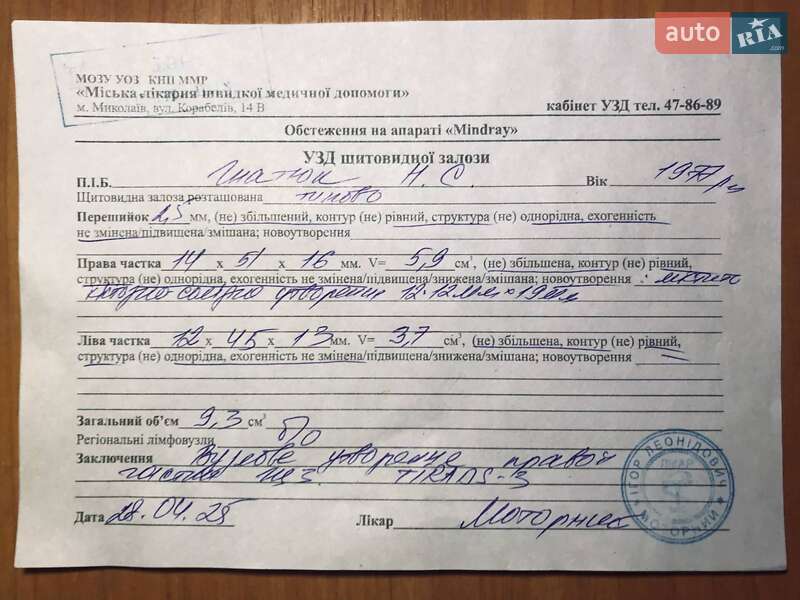 auto RIA.com
МОЗУ УОЗ КНП ММР
«Міська лікарня швидкої медичної допомоги»
м. Миколаїв, вул. Корабелів, 14 В
кабінет УЗД тел. 47-86-89
Обстеження на апараті «Mindray»
УЗД щитовидної залози
П.І.Б. Н. С. Вік 1977
Щитовидна залоза розташована типово
Перешийок 2,5 мм, (не) збільшений, контур (не) рівний, структура (не) однорідна, ехогенність
не змінена/підвищена/змішана; новоутворення
Права частка 14 х 51 х 16 мм. V= 5,9 см³, (не) збільшена, контур (не) рівний,
структура (не) однорідна, ехогенність не змінена/підвищена/знижена/змішана; новоутворення :
утворення 12×12мм × 19мм
Ліва частка 12 х 45 х 13 мм. V= 3,7 см³, (не) збільшена, контур (не) рівний,
структура (не) однорідна, ехогенність не змінена/підвищена/знижена/змішана; новоутворення —
Загальний об’єм 9,3 см³
Регіональні лімфовузли б/о
Заключення Вузлове утворення правої
частки щ.з. TIRADS-3
Дата 28.04.25 Лікар
ІГОР ЛЕОНІДОВИЧ
ЛІКАР
МОТОРНИЙ